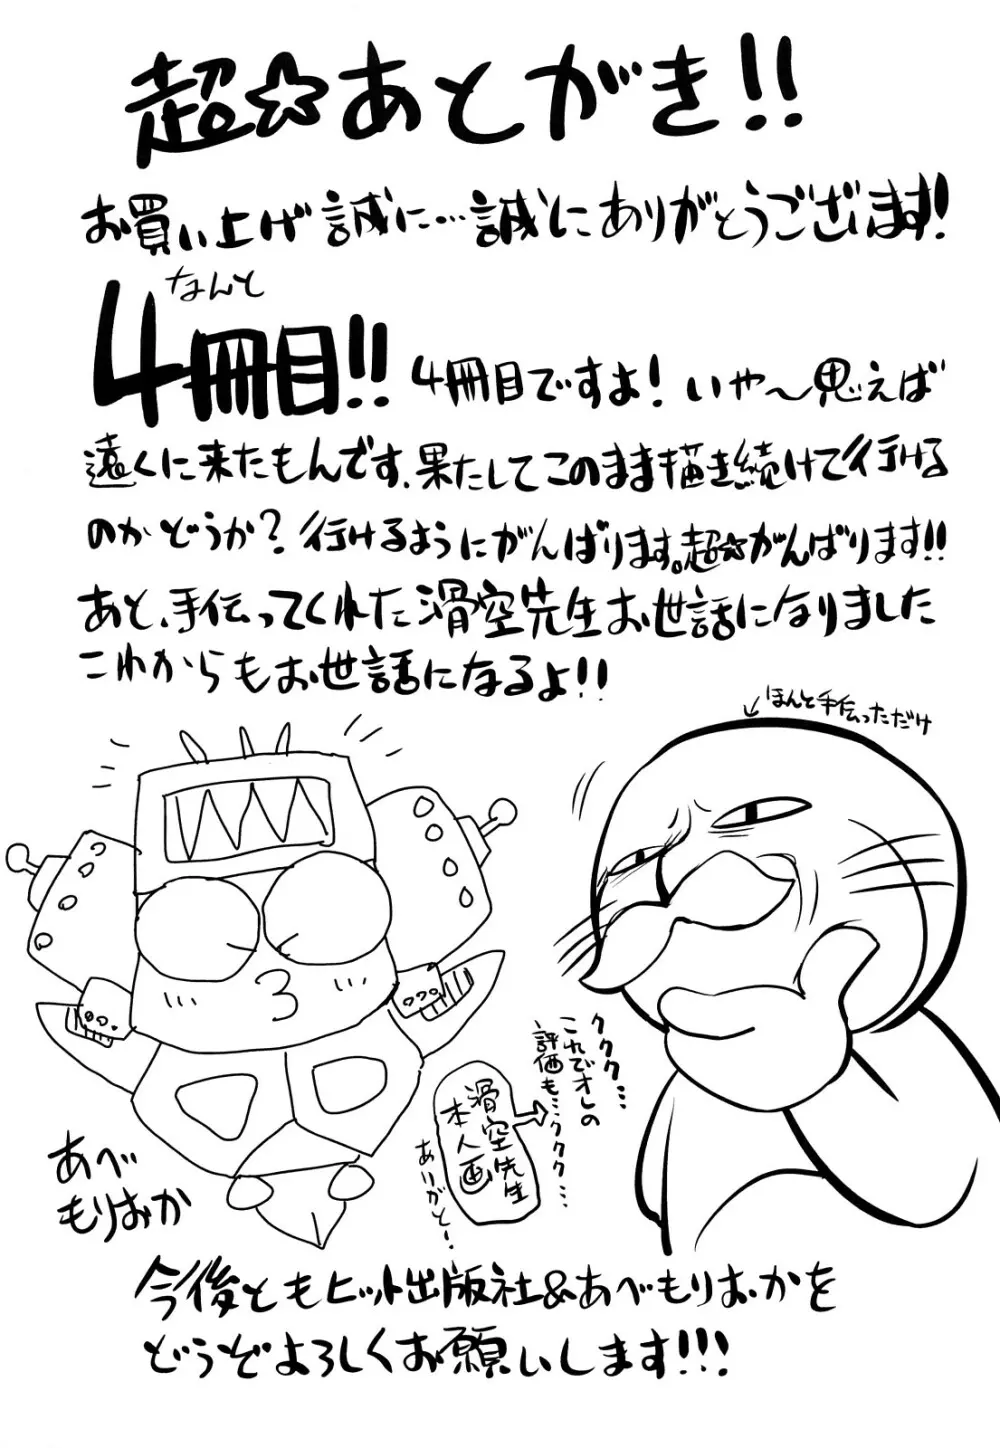 超☆あとがき!!
お買い上げ誠に…誠にありがとうございます!
なんと
4冊目!! 4冊目ですよ! いや〜思えば
遠くに来たもんです、果たしてこのまま描き続けて行ける
のかどうか? 行けるようにがんばります。超☆がんばります!!
あと、手伝ってくれた滑空先生お世話になりました
これからもお世話になるよ!!
ほんと手伝っただけ
ククク…
これでオレの
評価も…ククク…
滑空先生
本人画
ありがと〜!
あべ
もりおか
今後ともヒット出版社&あべもりおかを
どうぞよろしくお願いします!!!